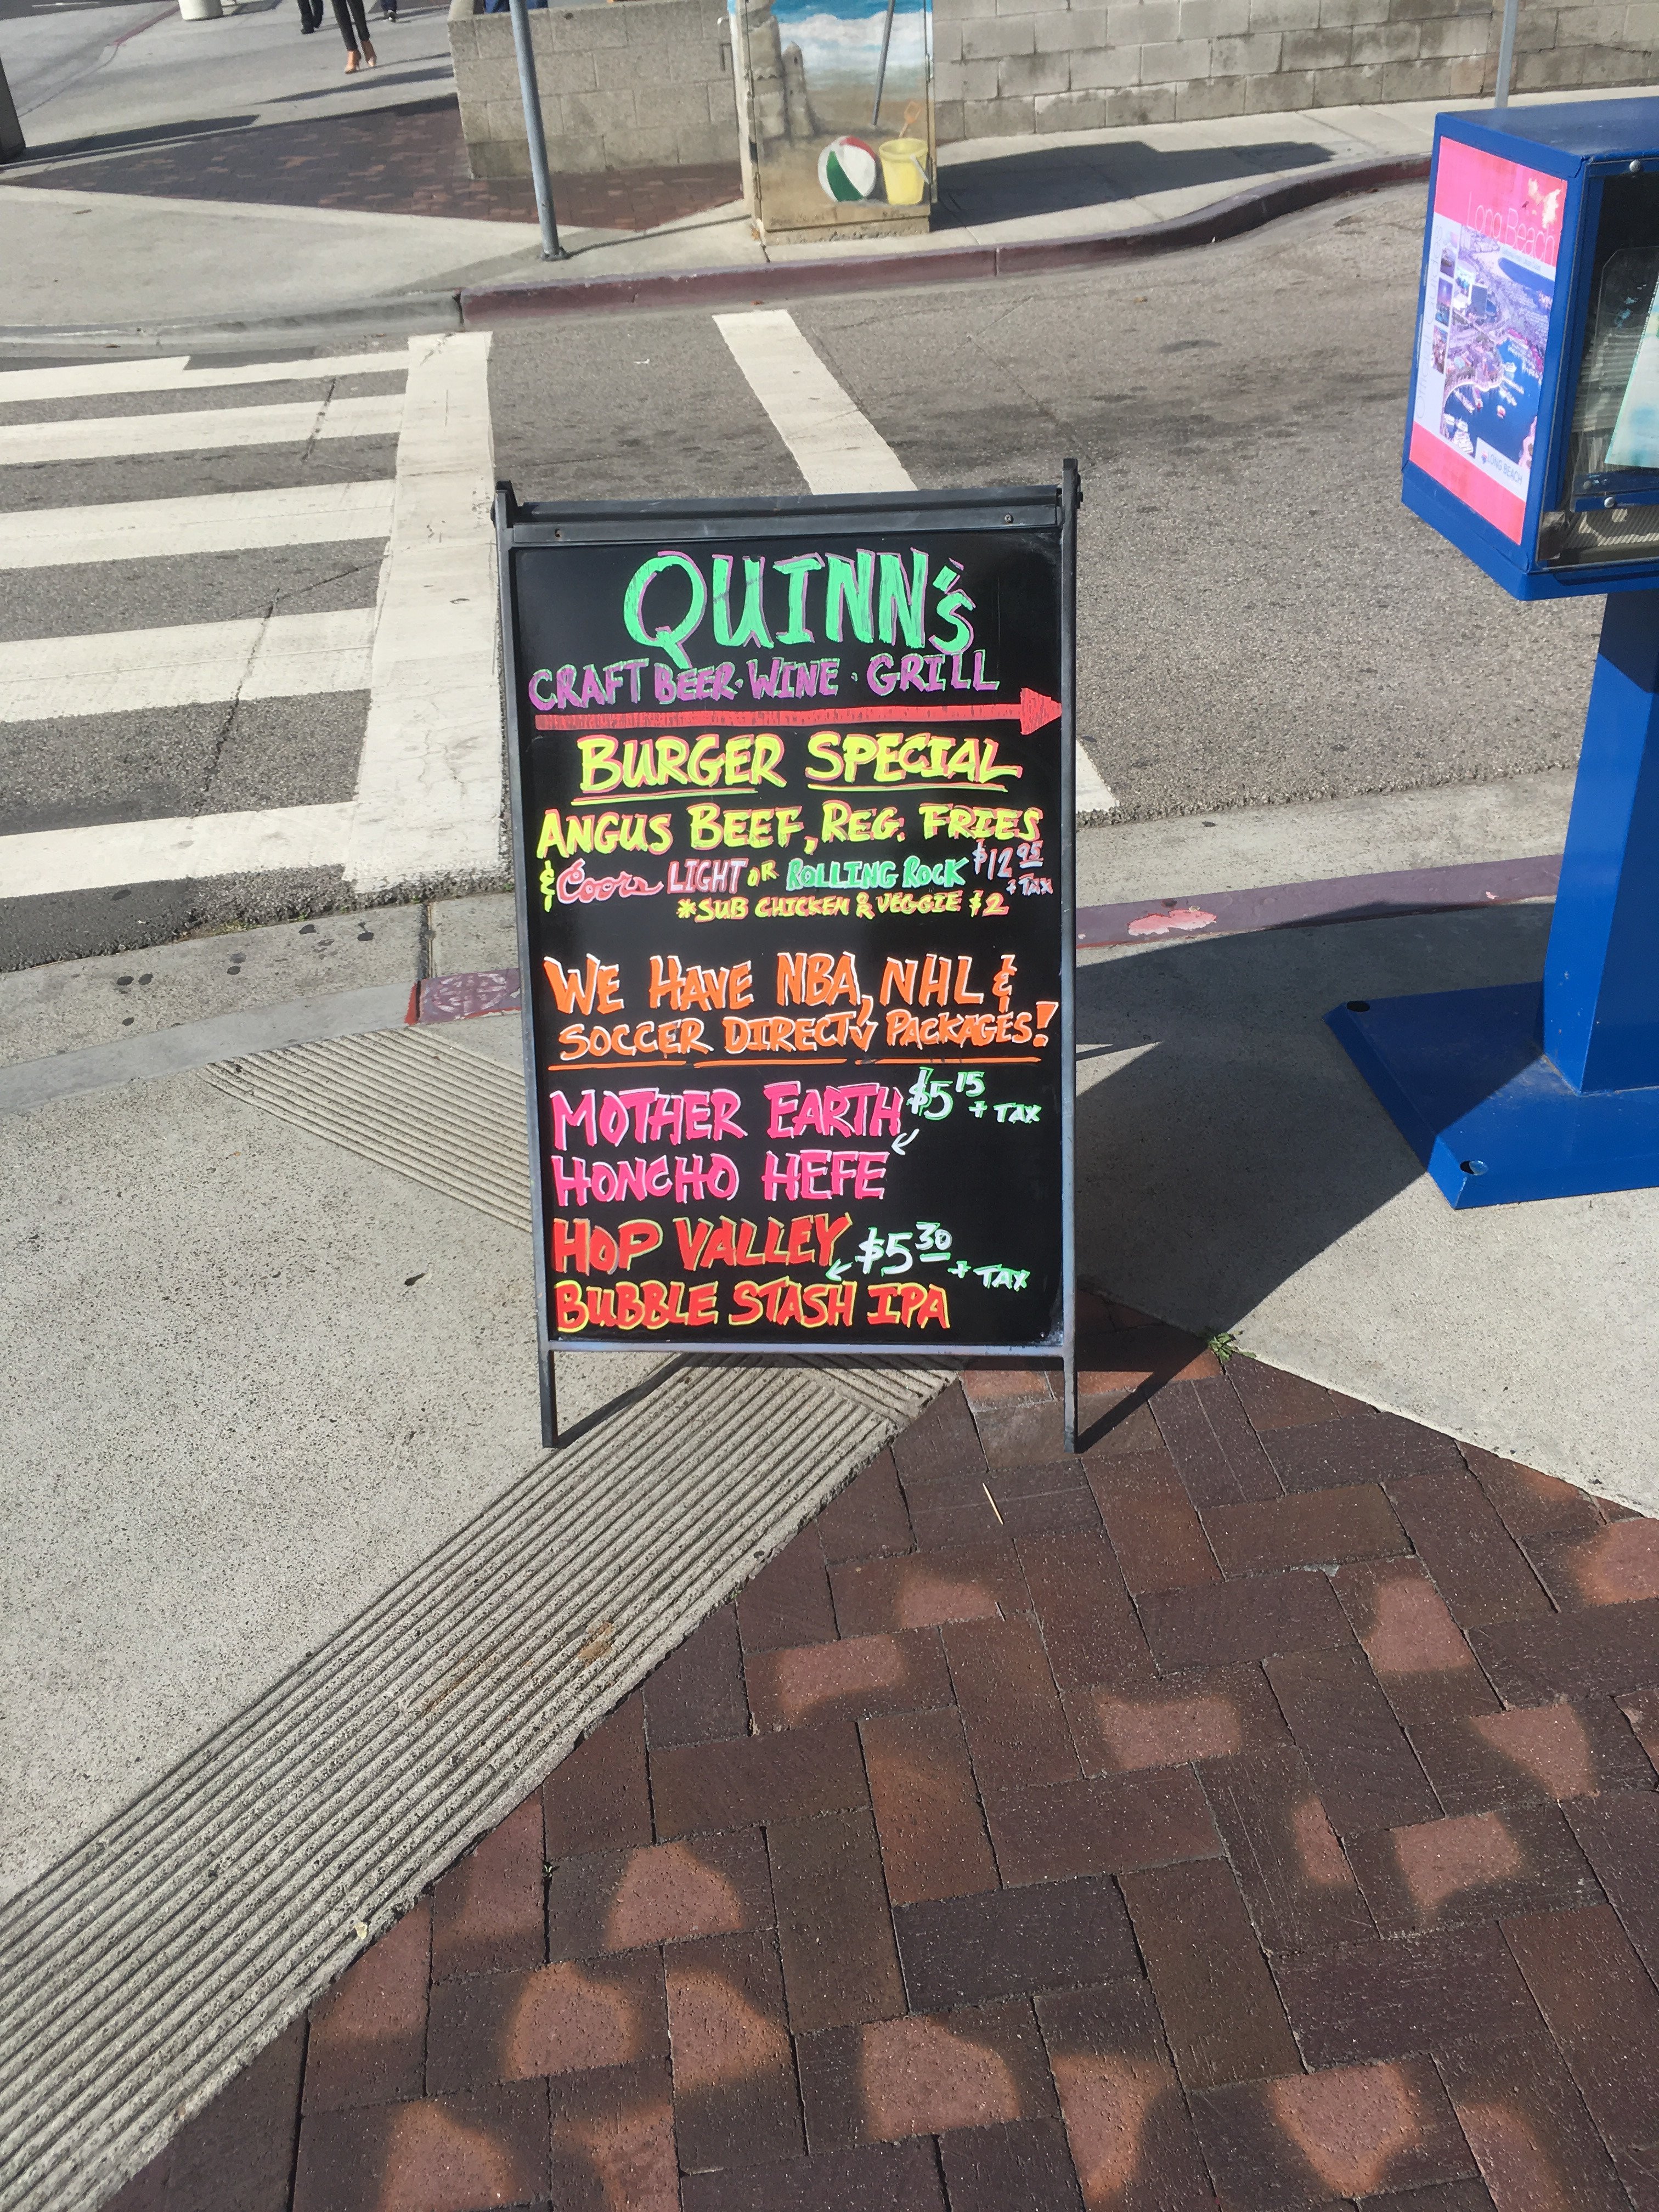 QUINN'S
CRAFT BEER · WINE · GRILL
BURGER SPECIAL
ANGUS BEEF, REG. FRIES
& Coors LIGHT OR ROLLING ROCK $12.95 + TAX
*SUB CHICKEN & VEGGIE $2
WE HAVE NBA, NHL &
SOCCER DIRECTV PACKAGES!
MOTHER EARTH $5.15 + TAX
HONCHO HEFE
HOP VALLEY $5.30 + TAX
BUBBLE STASH IPA
Long Beach
LONG BEACH